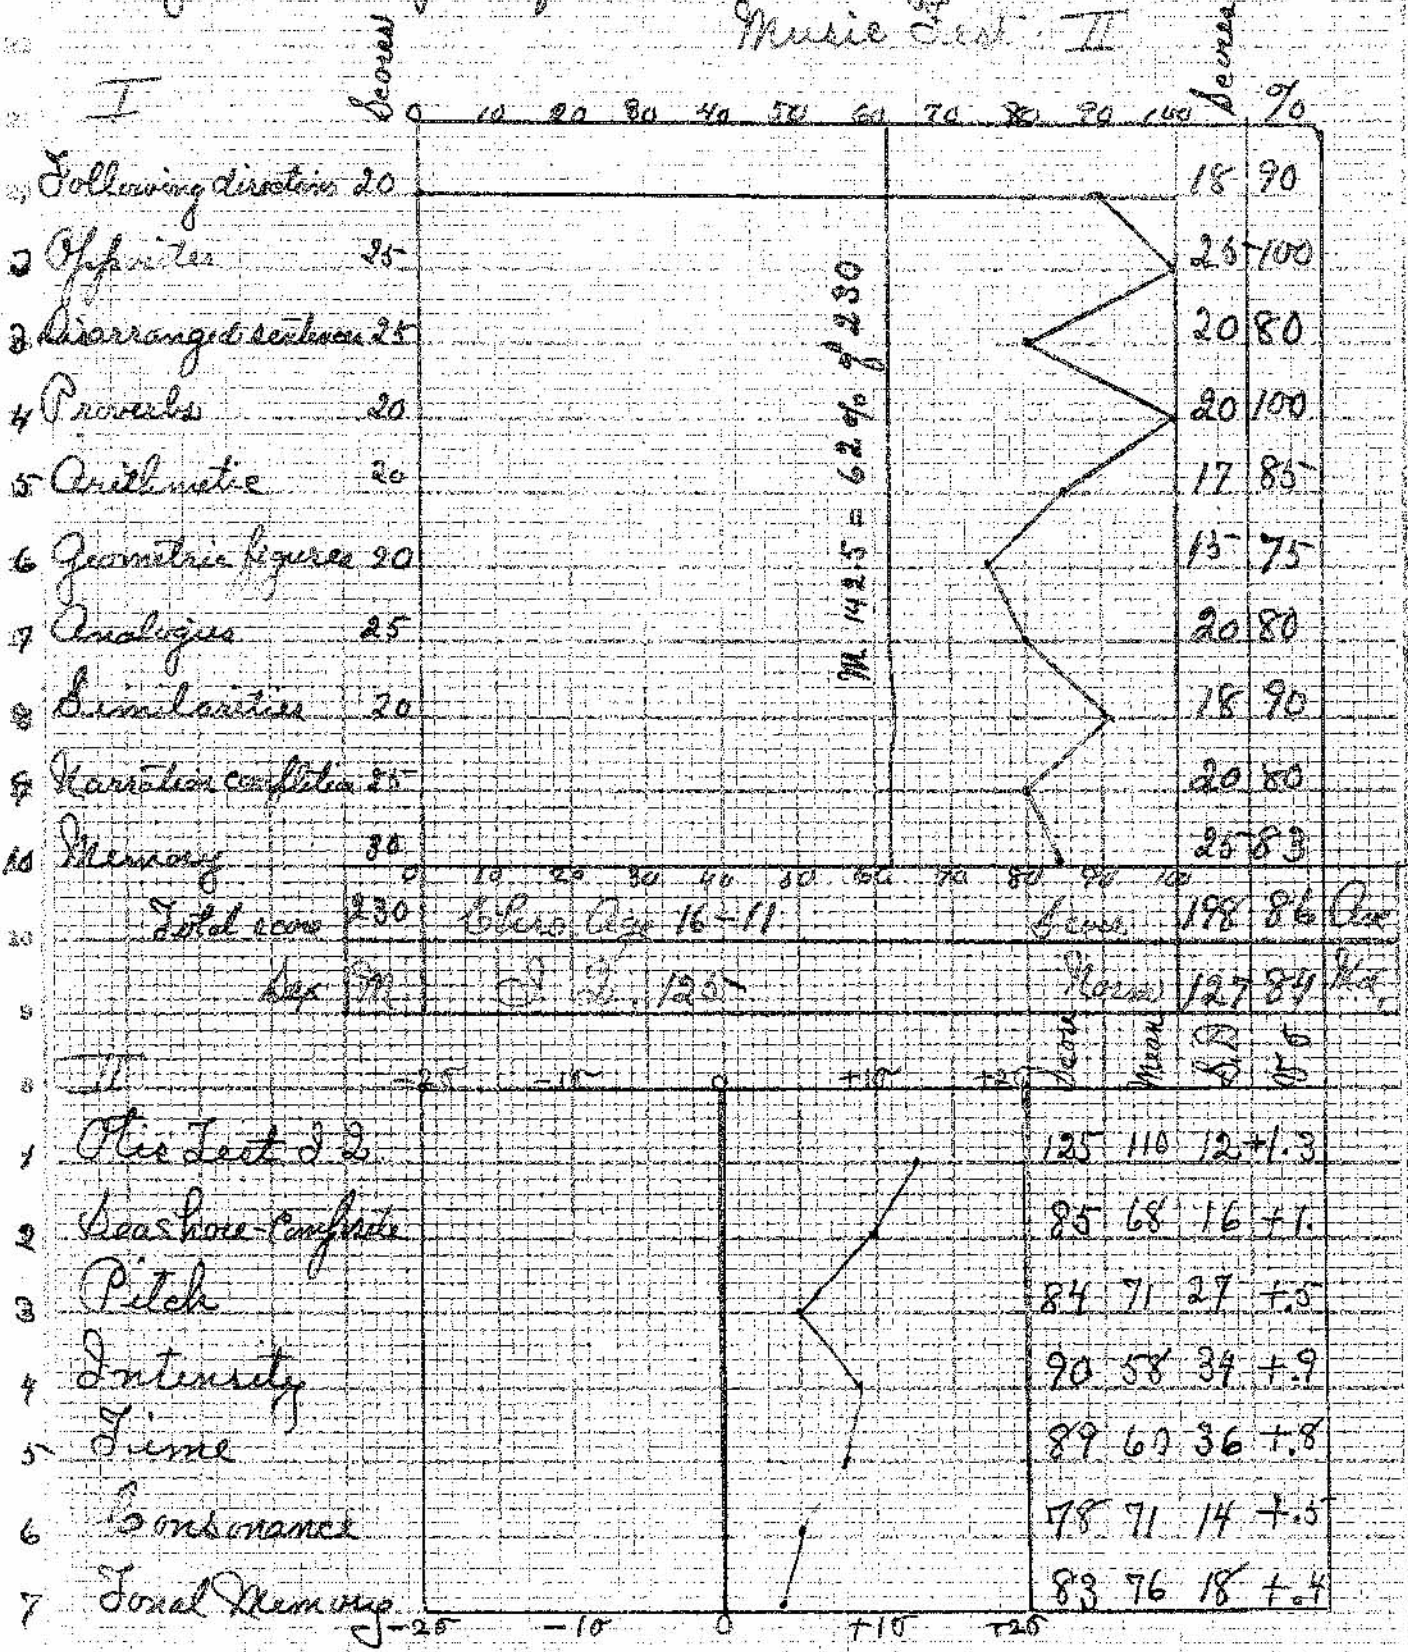 Music Test II
I Scores 0 10 20 30 40 50 60 70 80 90 100 Scores %
Following directions 20 18 90
2 Opposites 25 25 100
3 Disarranged sentences 25 20 80
4 Proverbs 20 20 100
5 Arithmetic 20 17 85
6 Geometric figures 20 15 75
7 Analogies 25 20 80
8 Similarities 20 18 90
9 Narration completion 25 20 80
10 Memory 30 25 83
M. 142.5 = 62% of 230
0 10 20 30 40 50 60 70 80 90 100
Total score 230 Chro. Age 16-11 Score 198 86 Ave
Sex M. I.Q. 125 Norm 127 84
II -2σ -1σ 0 +1σ +2σ Score Mean S.D.
1 Otis Test I Q 125 110 12 +1.3
2 Seashore-Composite 85 68 16 +1.
3 Pitch 84 71 27 +.5
4 Intensity 90 58 34 +.9
5 Time 89 60 36 +.8
6 Consonance 78 71 14 +.5
7 Tonal Memory 83 76 18 +.4
-2σ -1σ 0 +1σ +2σ